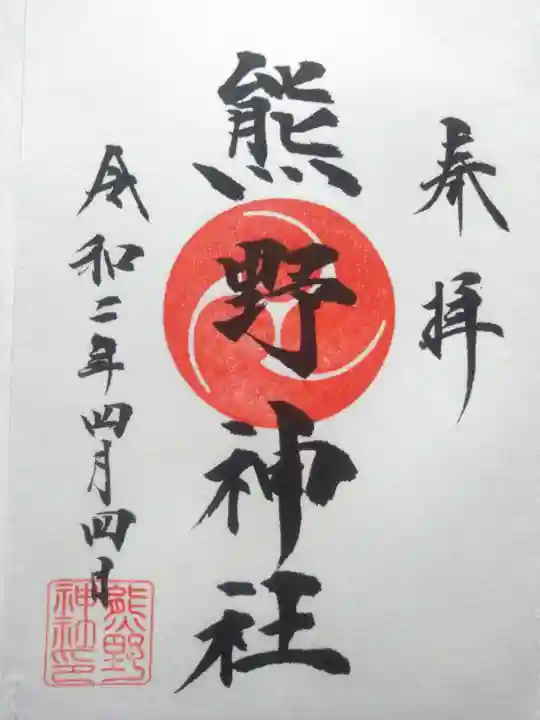 奉拝
熊野神社
令和二年四月四日
熊野
神社印